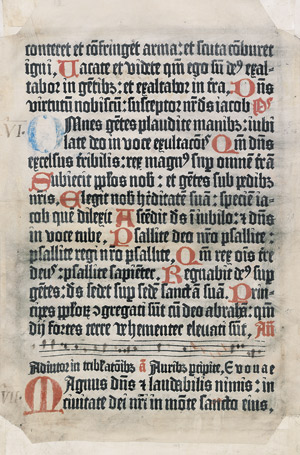 conteret et cōfringet arma: et scuta cōburet
igni, Uacate et videte qm̄ ego sū de᷒ exal-
tabor in gētib᷒: et exaltabor in fra. Dn̄s
virtutum nobiscū: susceptor nr̄ d̄s iacob Ps
VI. Omnes gētes plaudite manib᷒: iubi
late deo in voce exultacōis Qm̄ dn̄s
excelsus tribilis: rex magn᷒ sup omnē frā
Subiecit pplos nob̄: et gētes sub pedib᷒
nris, Elegit nob̄ h̄ditatē suā: speciē ia-
cob quē dilexit Ascēdit d̄s ī iubilo: et dn̄s
in voce tube, Psallite deo nr̄o psallite:
psallite regi nr̄o psallite, Qm̄ rex oīs tre
deus: psallite sapiēter, Regnabit de᷒ sup
gētes: d̄s sedet sup sedē sanctā suā Prin-
cipes pplor̄ ꝯgregati sūt cū deo abrahā: qm̄
dij fortes terre vehementer eleuati sūt, Añ
Adiutor in tribłatōib᷒ a Aurib᷒ pcipite, Evouae
VII. Magnus dn̄s et laudabilis nimis: in
ciuitate dei nr̄i in mōte sancto eius,